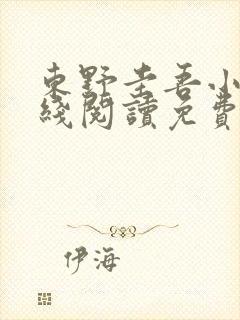 東野圭吾小
綫閱讀免費
伊海